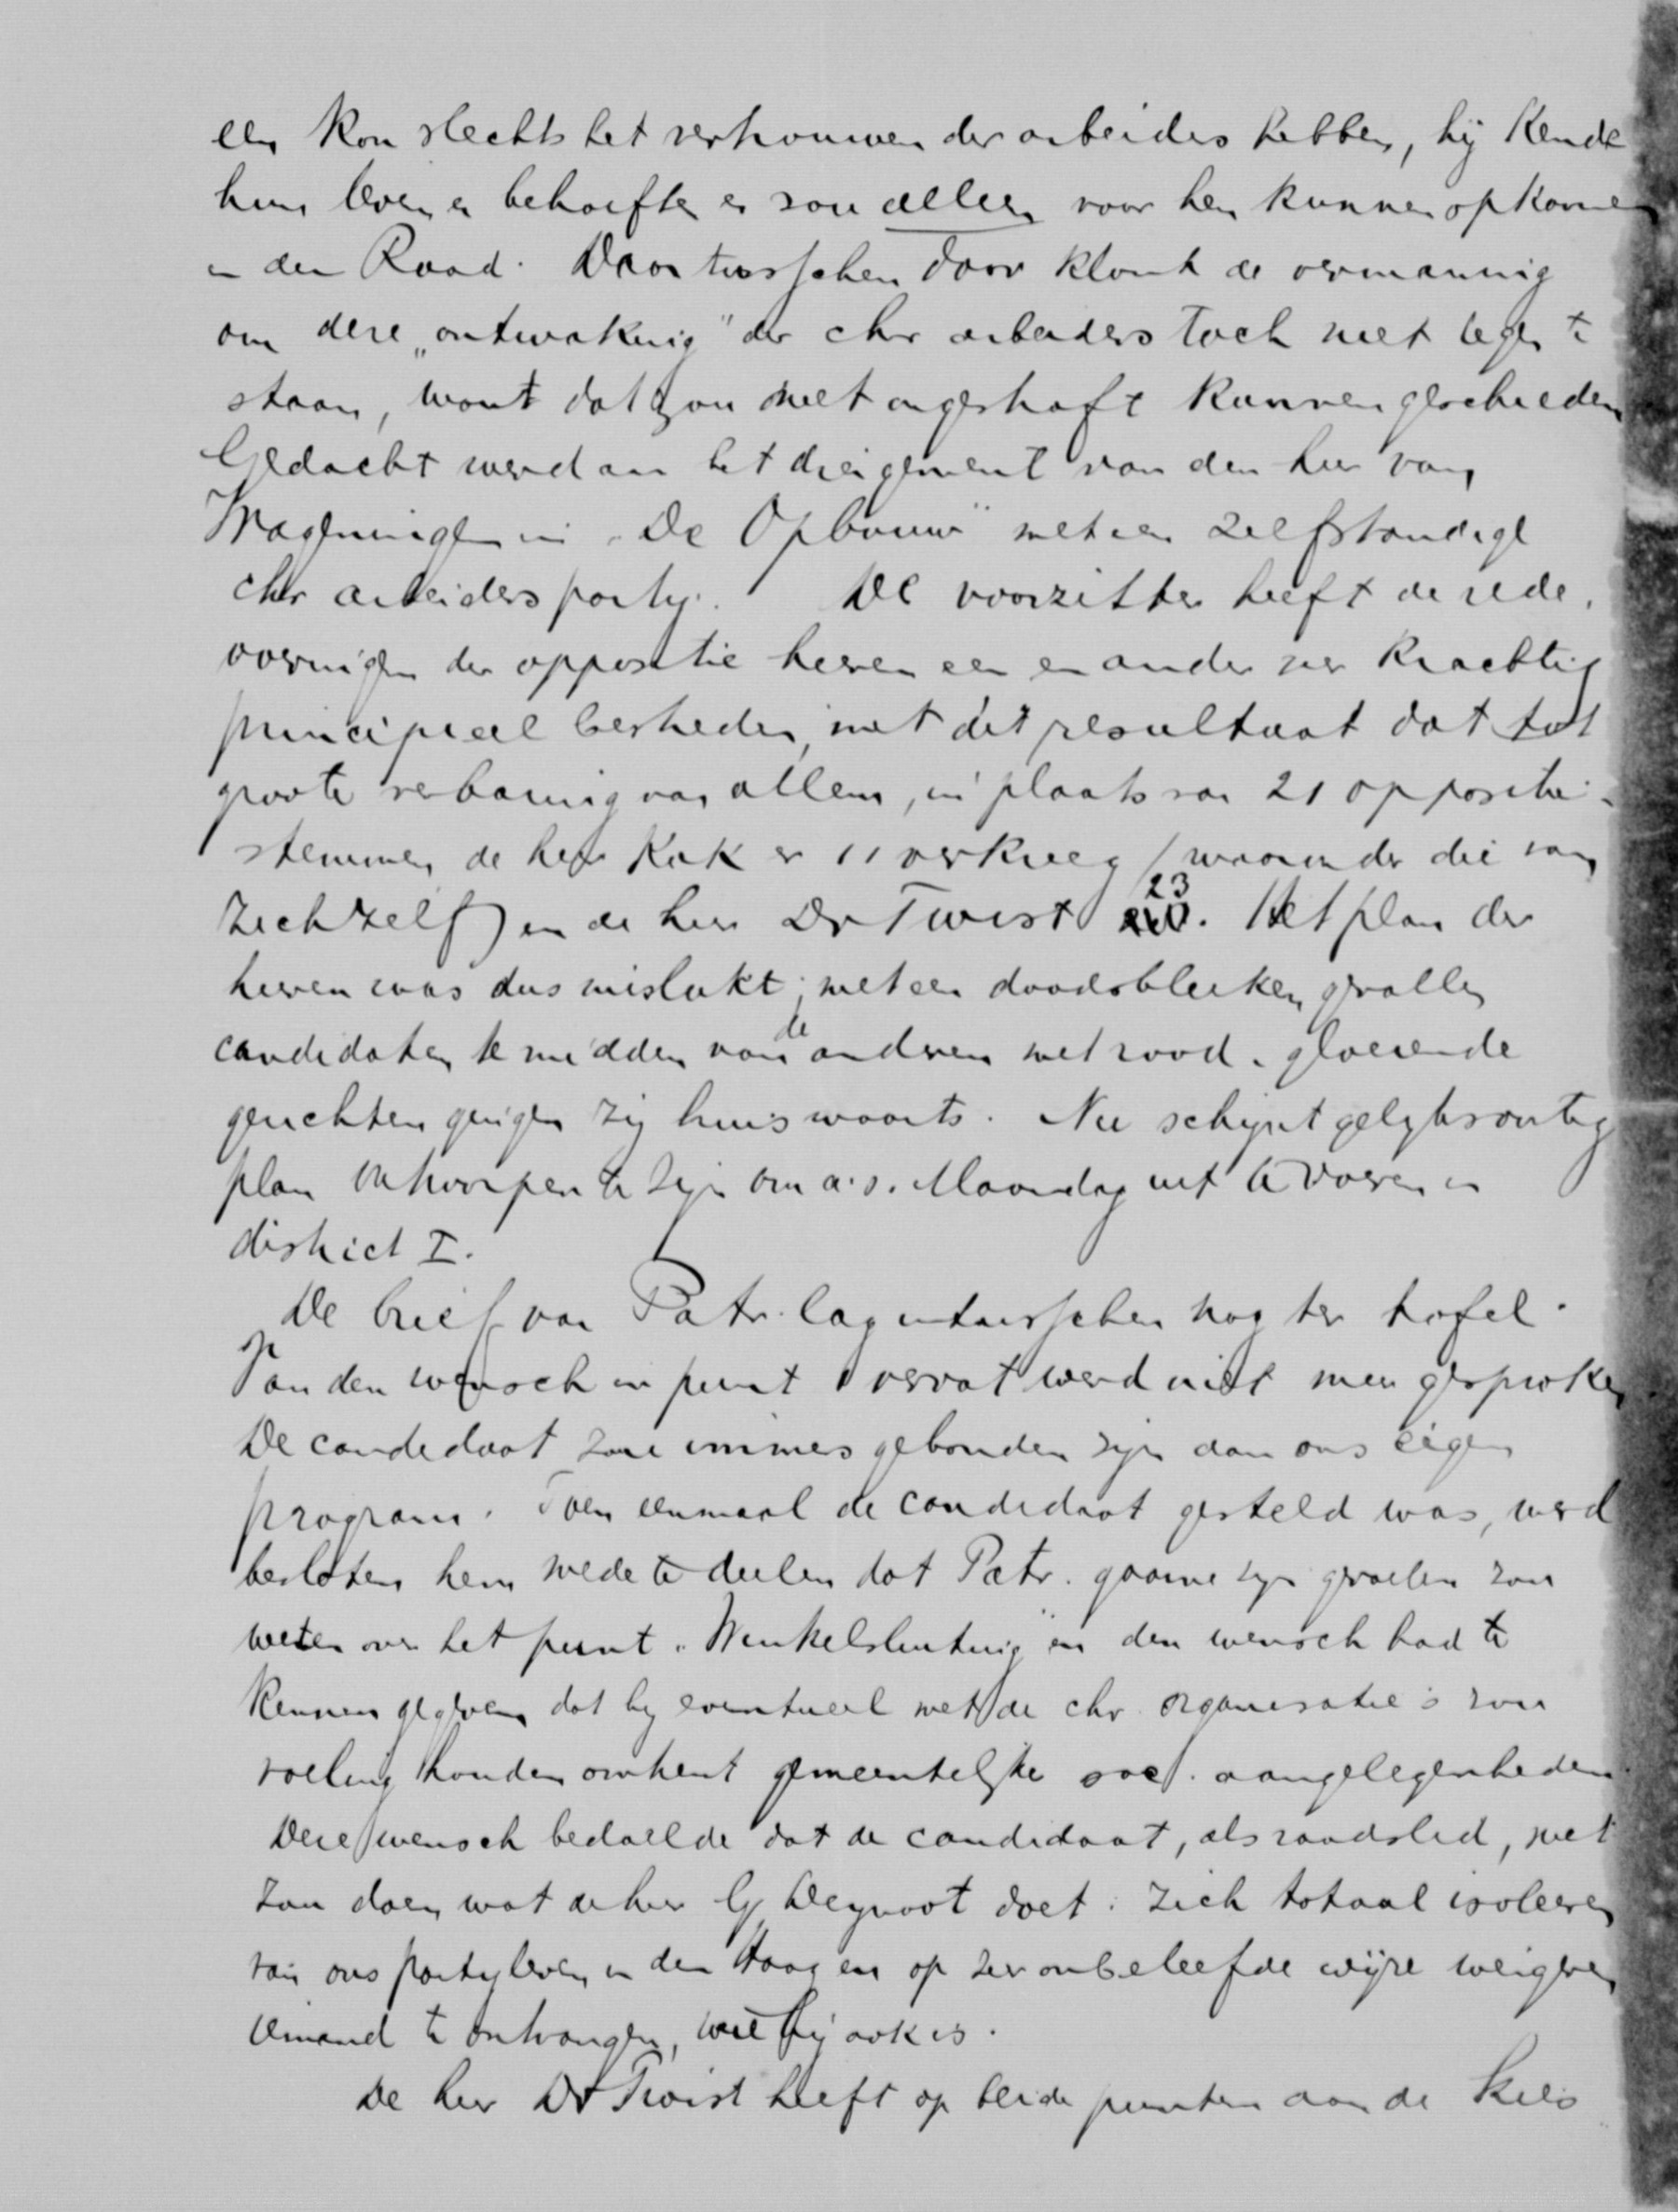 een kon slechts het vertrouwen der arbeiders hebben, hij kende
hun leven en behoeften en zou alleen voor hen kunnen opkomen
in den Raad. Daartusschen door klonk de vermaning
om deze „ontwaking" der chr arbeiders toch niet tegen te
staan, want dat zou niet ongestraft kunnen geschieden
Gedacht werd aan het dreigement van den heer van
Wageningen in „De Opbouw" met een zelfstandige
chr arbeiders party. De voorzitter heeft de rede,
voeringen der oppositie heeren een en ander zeer krachtig
principieel bestreden, met dit resultaat dat tot
groote verbazing van allen, in plaats van 21 oppositie-
stemmen de heer Kok er 11 verkreeg (waaronder die van
zichzelf) en de heer Dr Twist 23. Het plan der
heeren was dus mislukt; met een doodsbleeken gevallen
candidaten te midden van de anderen met rood-gloeiende
gezichten gingen zij huiswaarts. Nu schijnt gelijksoortig
plan ontworpen te zijn om a.s. Maandag uit te voeren in
district I.
De brief van Patr. lag intusschen nog ter tafel.
Op den wensch in punt 1 vervat werd niet meer gesproken
De candidaat zou immers gebonden zijn aan ons eigen
program. Toen eenmaal de candidaat gesteld was, werd
besloten hem mede te deelen dat Patr. gaarne zijn gevoelen zou
weten over het punt „Winkelsluiting" en den wensch had te
kennen gegeven dat hij eventueel met de chr. organisatie's zou
voeling houden omtrent gemeentelijke soc. aangelegenheden.
Deze wensch bedoelde dat de candidaat, als raadslid, niet
zou doen wat de heer Deynoot doet: zich totaal isoleeren
van ons partyleven in den Haag en op zeer onbeleefde wijze weigeren
iemand te ontvangen, wie hij ook is.
De heer Dr Twist heeft op beide punten aan de Kies